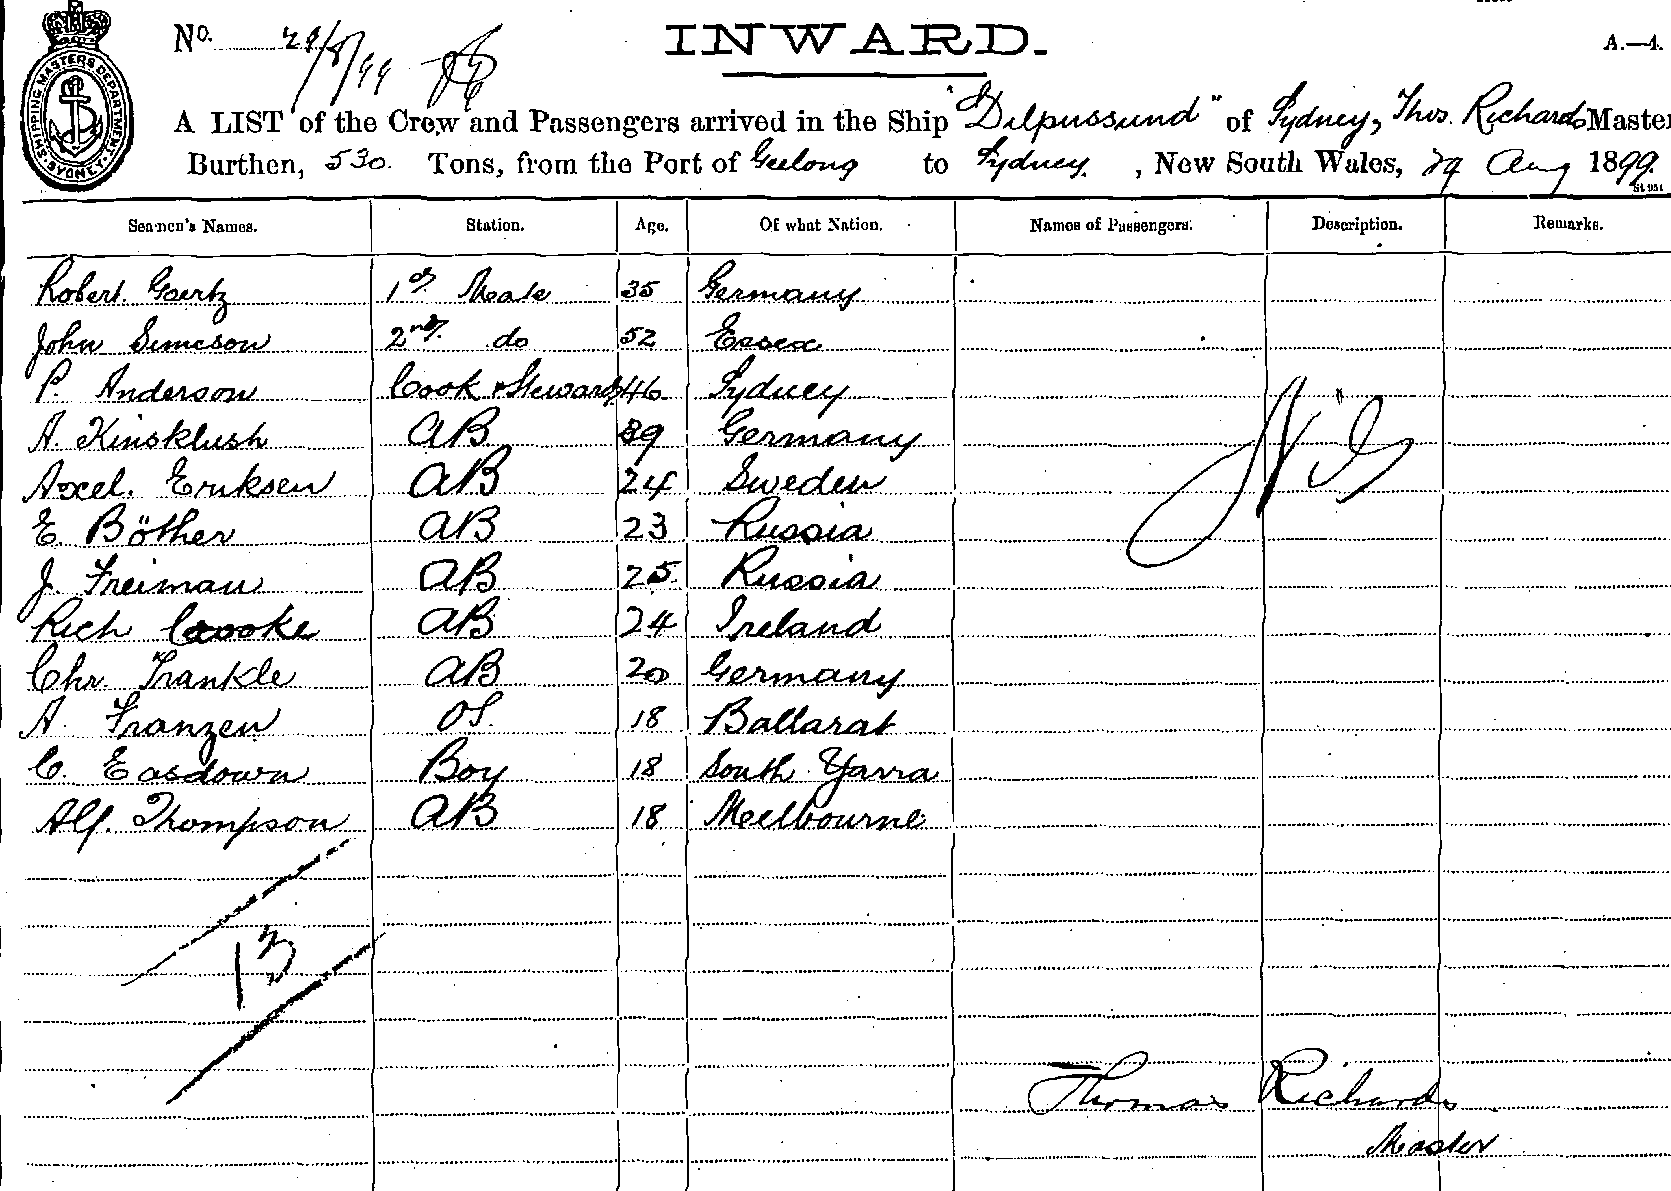 No. 29/8/99
INWARD.
A.—4.
SHIPPING MASTERS DEPARTMENT SYDNEY
A LIST of the Crew and Passengers arrived in the Ship "Dilpussund" of Sydney, Thos. Richards Master
Burthen, 530. Tons, from the Port of Geelong to Sydney, New South Wales, 29 Aug 1899.
Seamen's Names. Station. Age. Of what Nation. Names of Passengers. Description. Remarks.
Robert Goertz 1st Mate 35 Germany
John Simeson 2nd do 52 Essex
P. Anderson Cook & Steward 46 Sydney
A. Kinsklush AB 39 Germany
Axel. Eriksen AB 24 Sweden
E. Böther AB 23 Russia
J. Freiman AB 25 Russia
Rich Cooke AB 24 Ireland
Chr. Frankle AB 20 Germany
A. Franzen OS. 18 Ballarat
C. Easdown Boy 18 South Yarra
Alf. Thompson AB 18 Meelbourne
Nil
13
Thomas Richards
Master